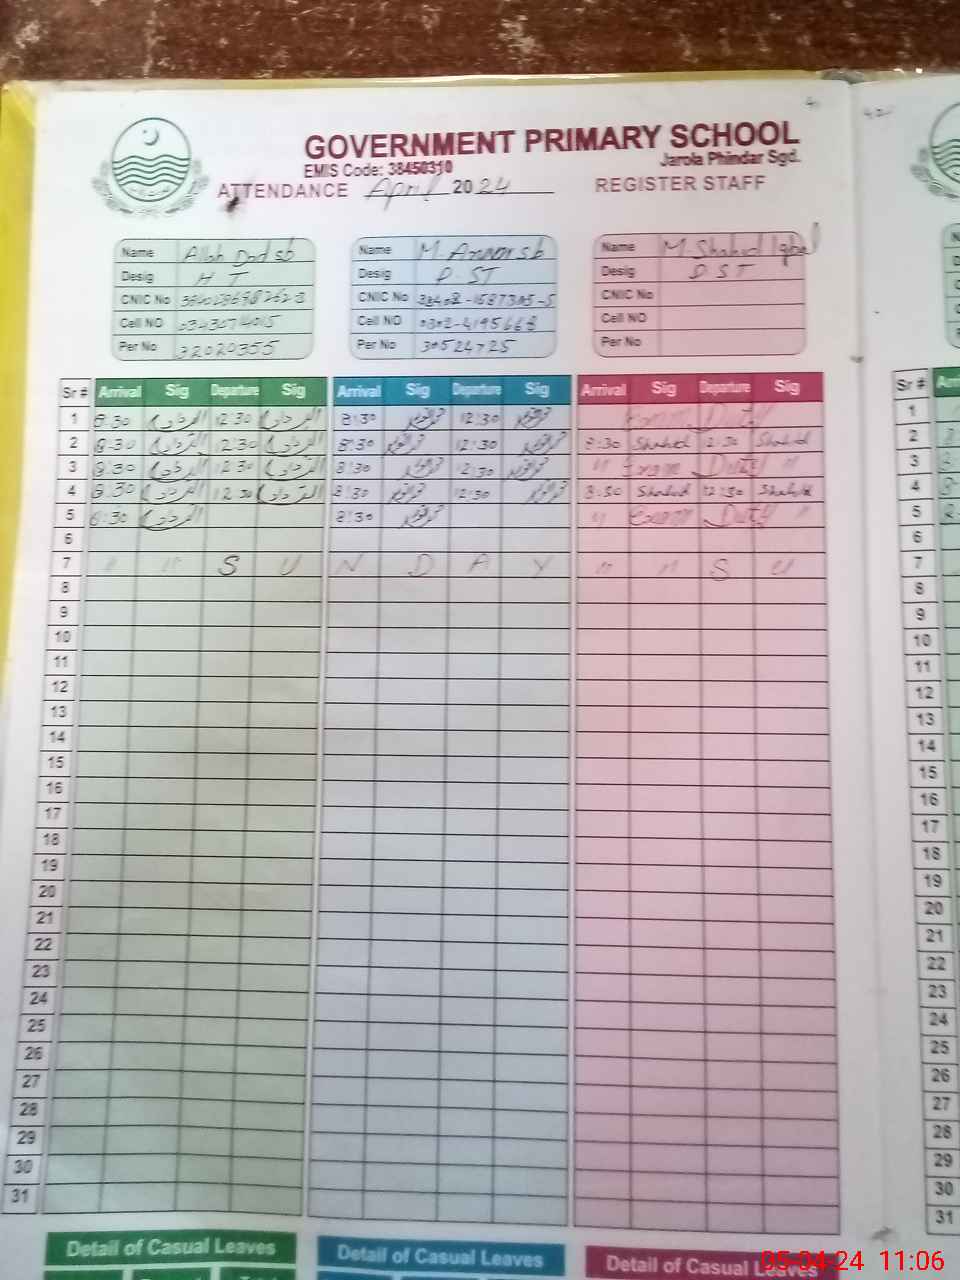 GOVERNMENT PRIMARY SCHOOL
EMIS Code: 38450310 Jarola Phindar Sgd.
ATTENDANCE April 2024 REGISTER STAFF
Name Allah Dad sb
Desig H T
CNIC No
Cell NO
Per No 32020355
Name M. Anwar sb
Desig P. ST
CNIC No
Cell NO 0302-4195668
Per No 30524725
Name M Shahid Iqbal
Desig P S T
CNIC No
Cell NO
Per No
Sr # Arrival Sig Departure Sig Arrival Sig Departure Sig Arrival Sig Departure Sig
1 8:30 12:30 8:30 12:30 Exam Duty
2 8:30 12:30 8:30 12:30 8:30 Shahid 12:30 Shahid
3 8:30 12:30 8:30 12:30 " Exam Duty "
4 8:30 12:30 8:30 12:30 8:30 Shahid 12:30 Shahid
5 8:30 8:30 " Exam Duty "
6
7 " " S U N D A Y " " S U
8
9
10
11
12
13
14
15
16
17
18
19
20
21
22
23
24
25
26
27
28
29
30
31
Detail of Casual Leaves Detail of Casual Leaves Detail of Casual Leaves
05-04-24 11:06